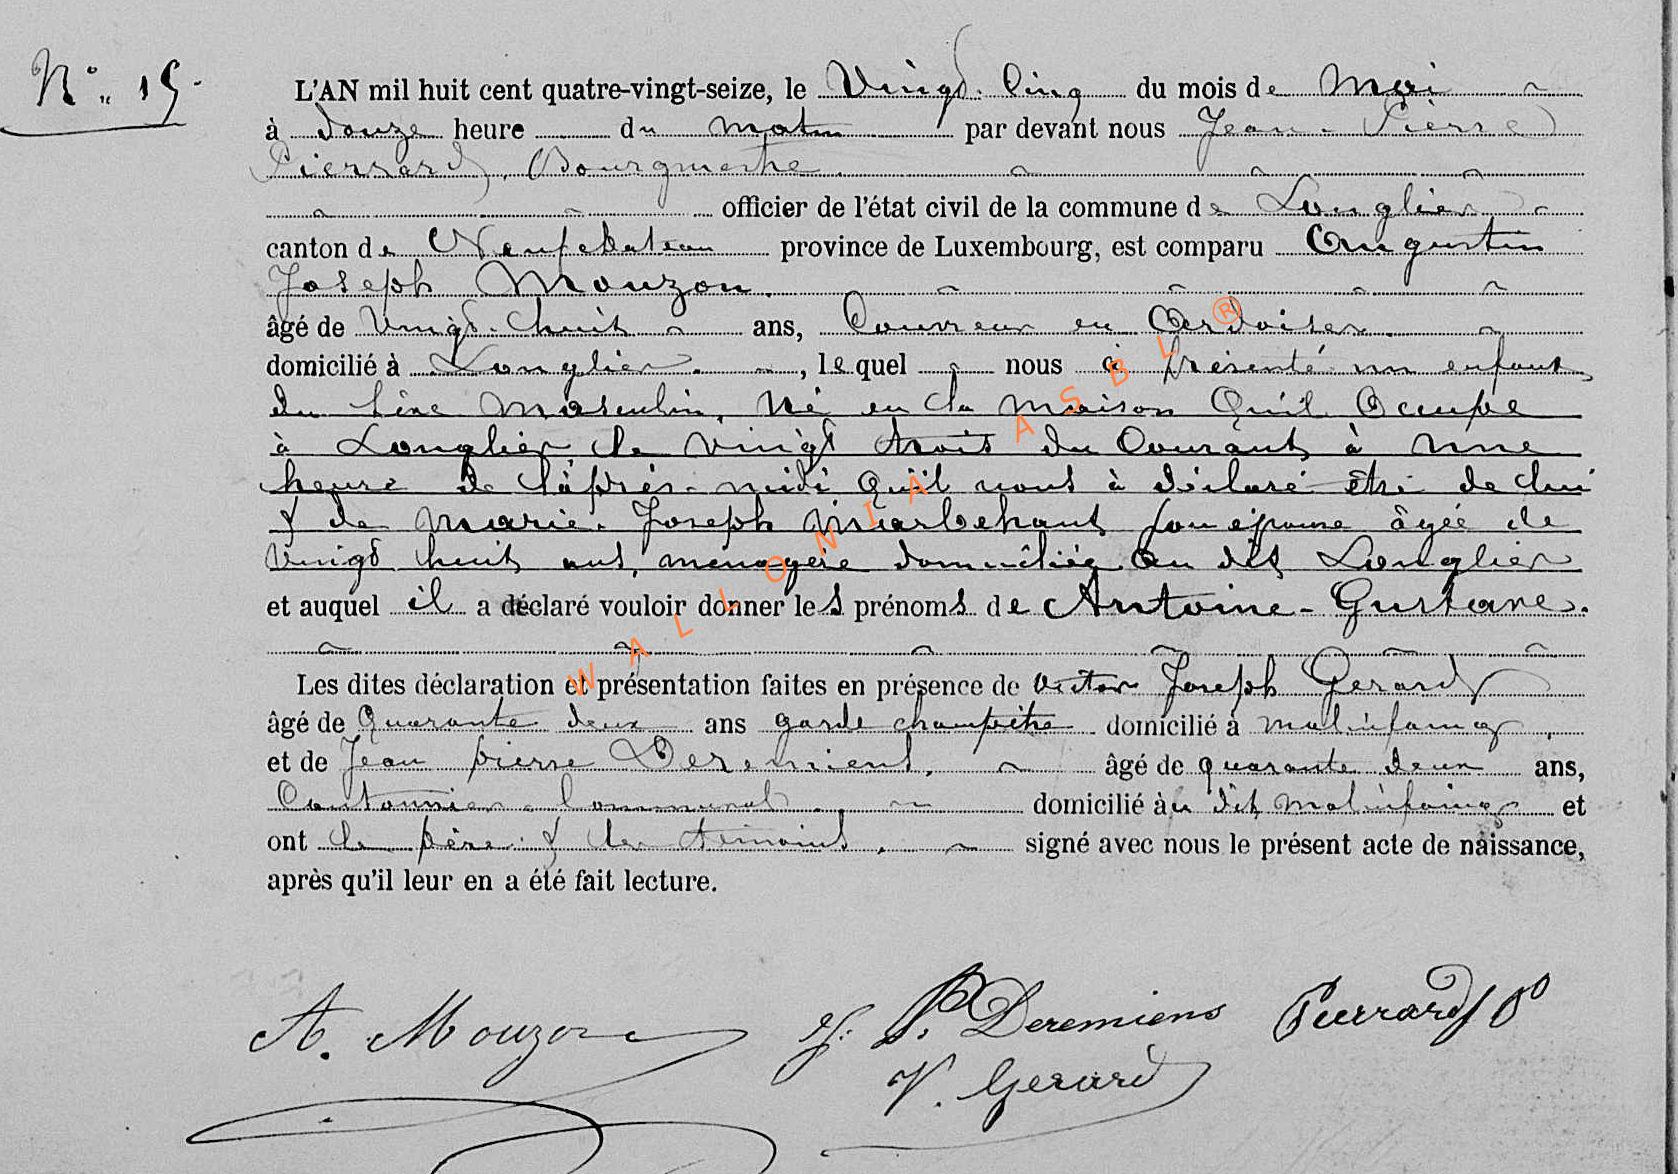 N° 15.
L'AN mil huit cent quatre-vingt-seize, le Vingt-Cinq du mois de Mai
à douze heure du matin par devant nous Jean-Pierre
Pierrard, Bourgmestre
officier de l'état civil de la commune de Longlier
canton de Neufchateau province de Luxembourg, est comparu Augustin
Joseph Mouzon.
âgé de Vingt-huit ans, Couvreur en Ardoises
domicilié à Longlier, lequel nous a présenté un enfant
du sèxe masculin, né en la maison qu'il occupe
à Longlier le vingt trois du Courant à une
heure de l'après-midi qu'il nous à déclaré être de lui
& de Marie-Joseph Marbehant son épouse âgée de
Vingt huit ans, ménagère domiciliée au dit Longlier
et auquel il a déclaré vouloir donner les prénoms de Antoine-Gustave.
Les dites déclaration et présentation faites en présence de Victor Joseph Gerard
âgé de Quarante deux ans garde champêtre domicilié à Molinfaing,
et de Jean pierre Deremiens, âgé de quarante deux ans,
Cantonnier Communal domicilié au dit Molinfaing et
ont le père & les témoins, signé avec nous le présent acte de naissance,
après qu'il leur en a été fait lecture.
A. Mouzon J. P. Deremiens Pierrard J P
V. Gerard
WALLONIA ASBL ®